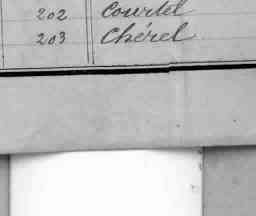 202 Courtel
203 Chérel